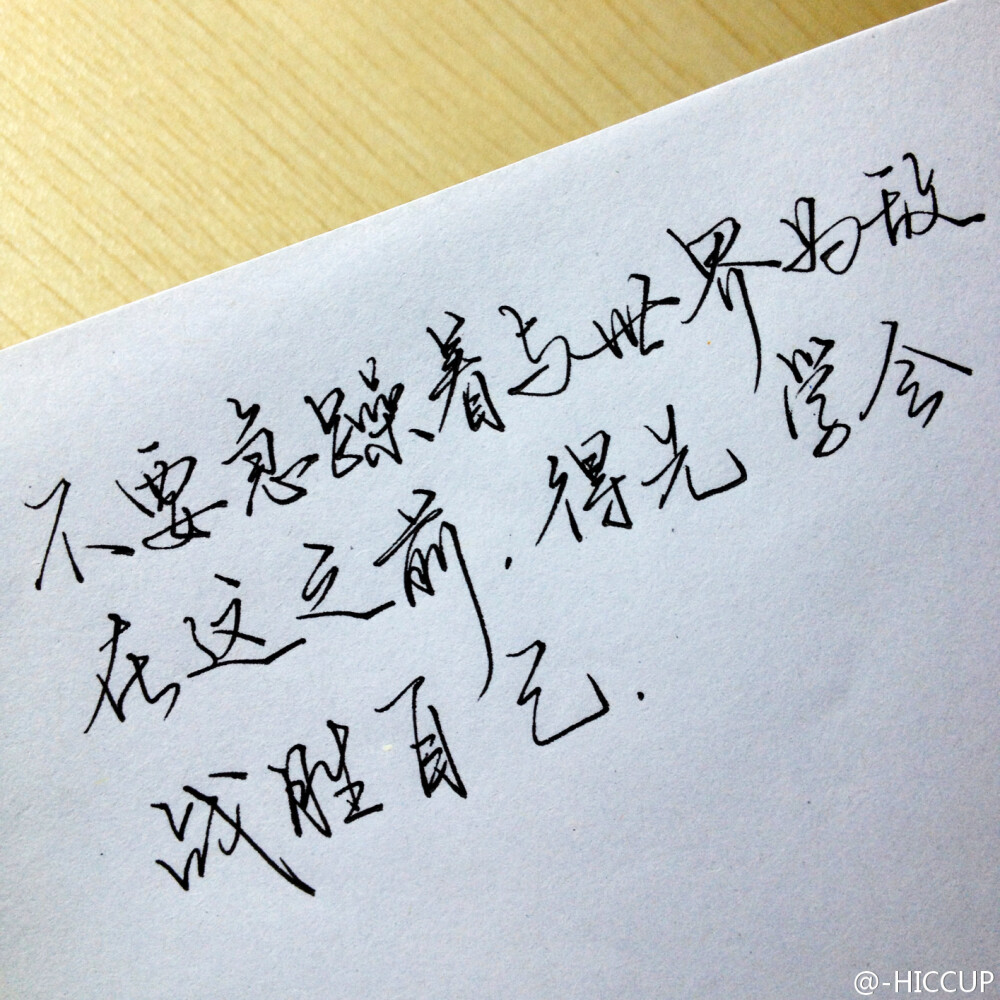 不要急躁着与世界为敌
在这之前.得先学会
战胜自己.
@-HICCUP